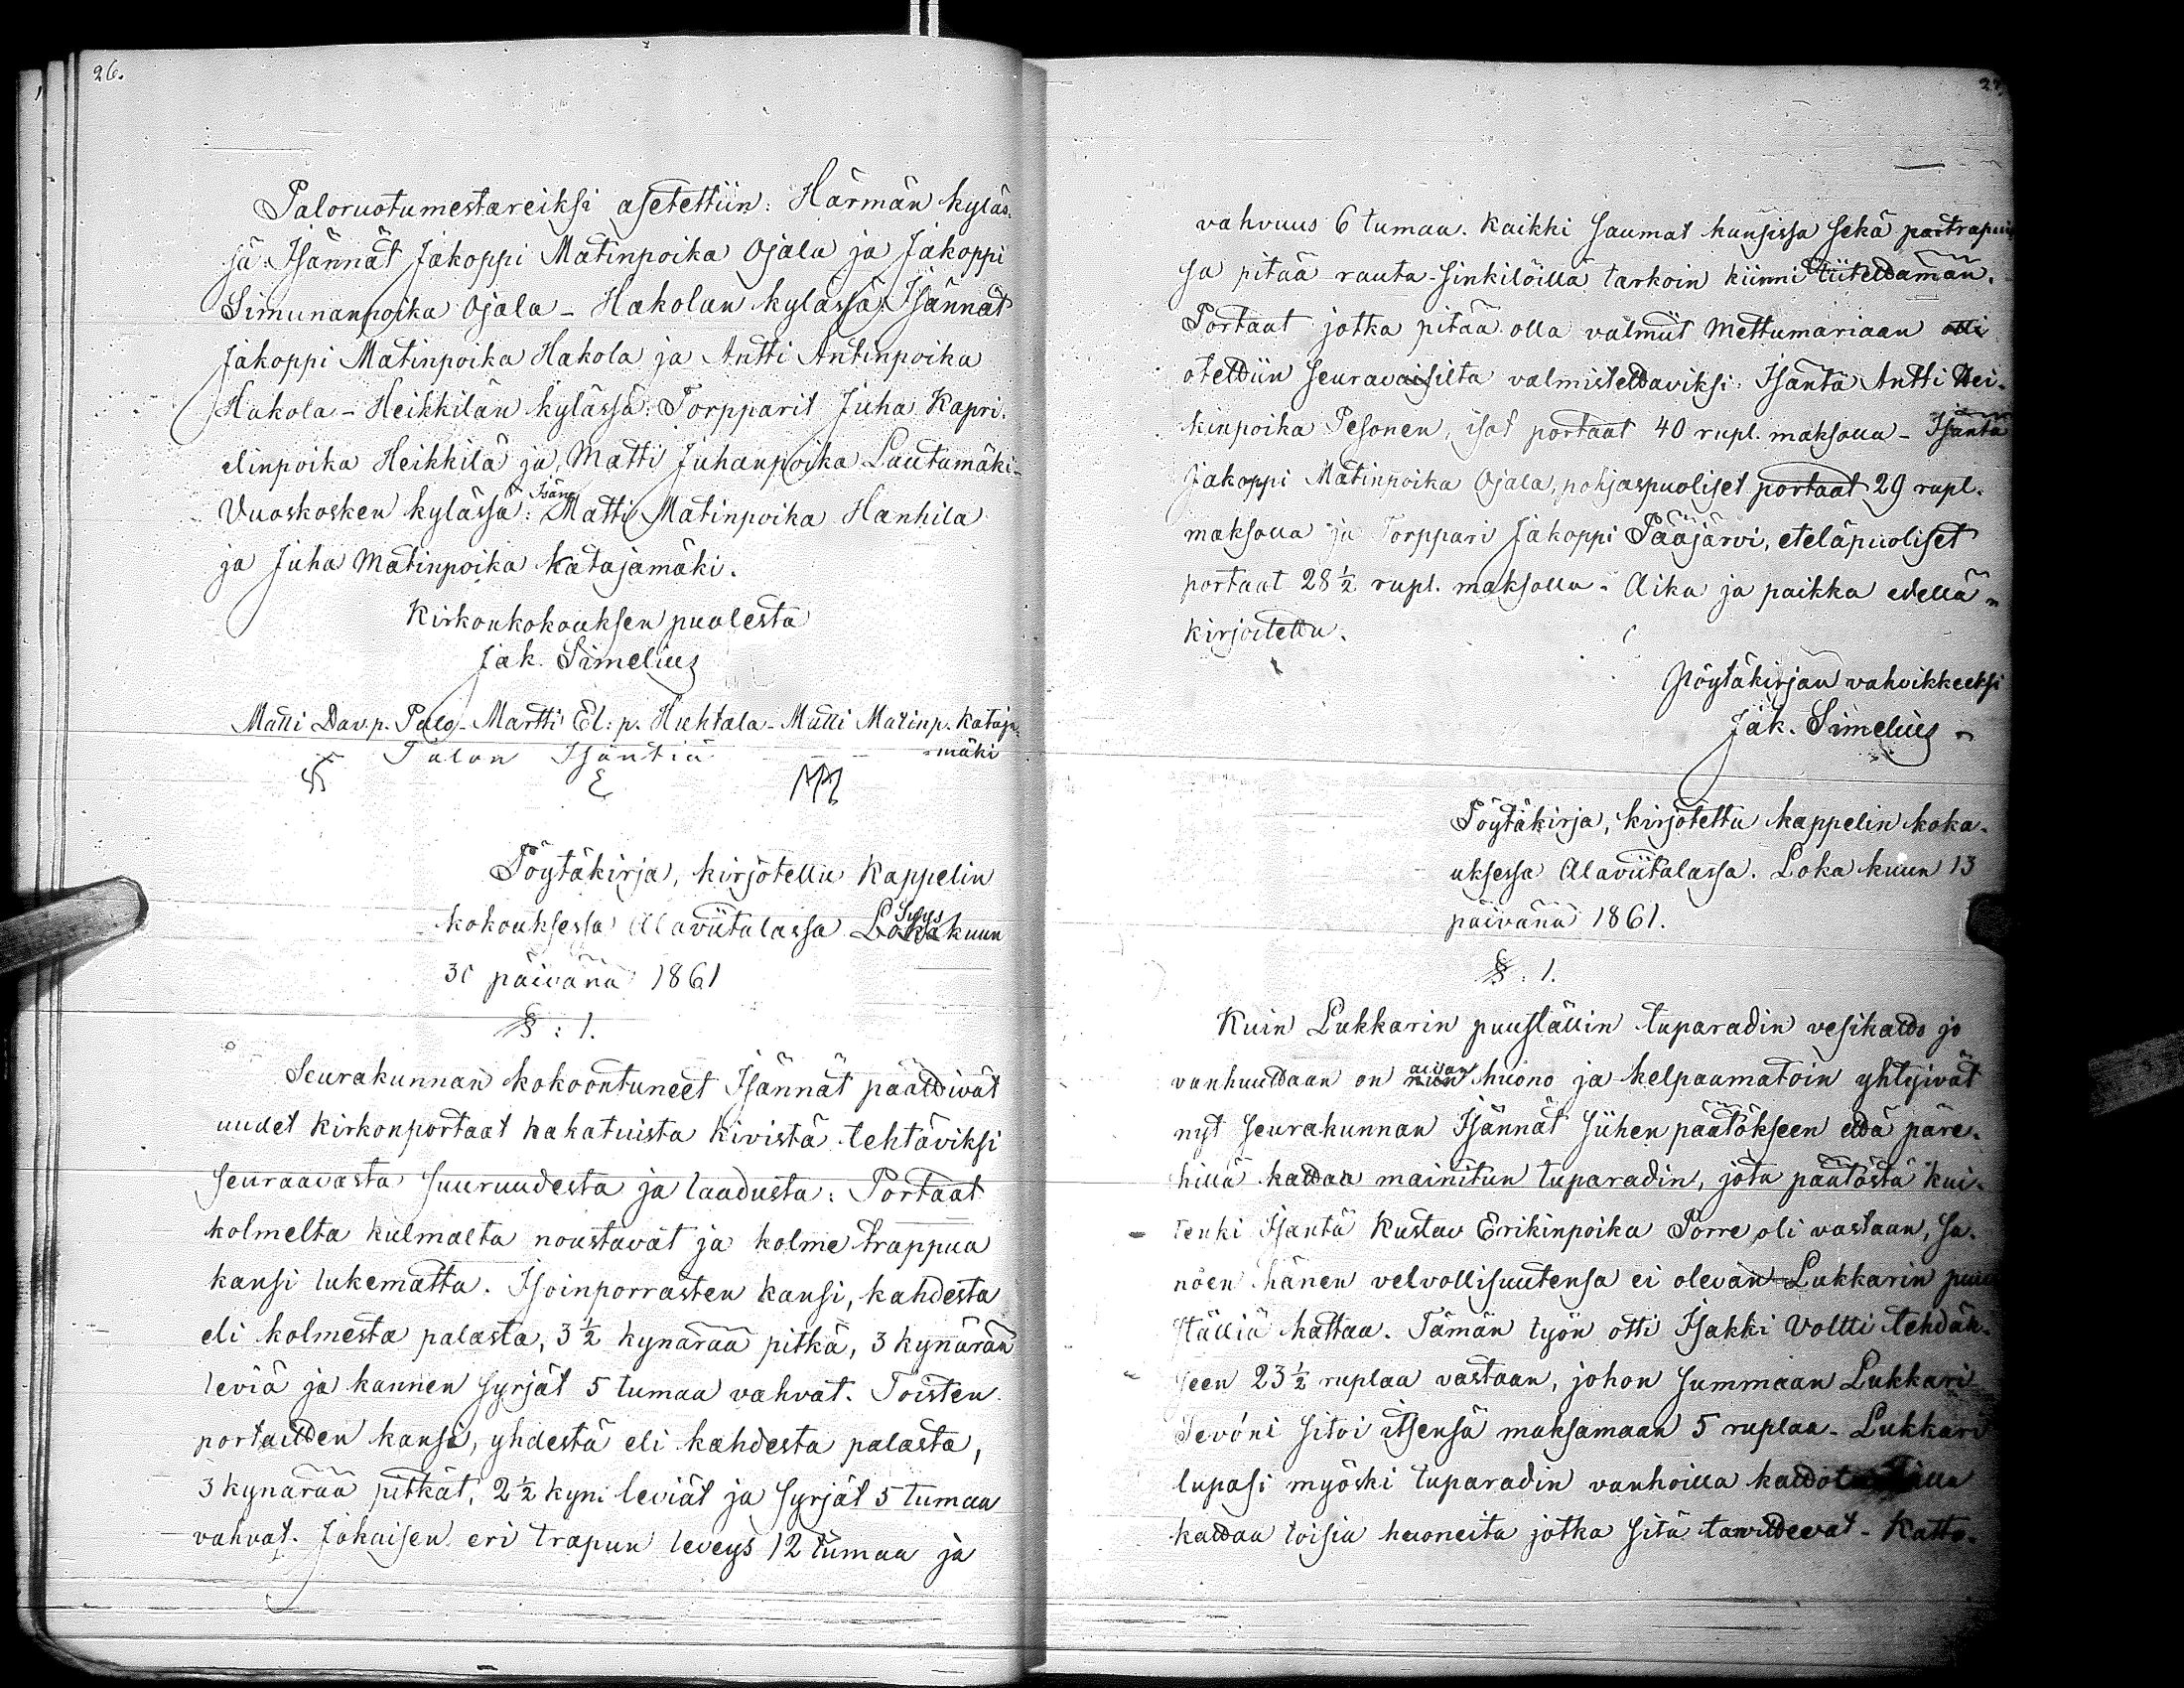 26.
Paloruotumestareiksi asetettiin: Härmän kyläs-
sä: Isännät Jakoppi Matinpoika Ojala ja Jakoppi
Simunanpoika Ojala - Hakolan kylässä: Isännät
Jakoppi Matinpoika Hakola ja Antti Antinpoika
Hakola - Heikkilän kylässä: Torpparit Juha Kapri-
elinpoika Heikkilä ja Matti Juhanpoika Lautamäki -
Vuoskosken kylässä: Isän: Matti Matinpoika Hanhila
ja Juha Matinpoika Katajamäki.
Kirkonkokouksen puolesta
Jak. Simelius
Matti Dav.p. Palo - Martti El: p. Huhtala - Matti Matinp. Kataja-
Talon Isäntiä -mäki
Pöytäkirja, kirjotettu Kappelin
kokouksessa Alaviitalassa Loka Syys kuun
30 päivänä 1861
§: 1.
Seurakunnan kokoontuneet Isännät päättivät
uudet kirkonportaat hakatuista kivistä tehtäviksi
seuraavasta suuruudesta ja laadusta: Portaat
kolmelta kulmalta noustavat ja kolme trappua
kansi lukematta. Isoinporrasten kansi, kahdesta
eli kolmesta palasta, 3 1/2 kynärää pitkä, 3 kynärää
leviä ja kannen syrjät 5 tumaa vahvat. Toisten
portaitten kansi, yhdestä eli kahdesta palasta,
3 kynärää pitkät, 2 1/2 kyn: leviät ja syrjät 5 tumaa
vahvat. Jokaisen eri trapun leveys 12 tumaa ja
27.
vahvuus 6 tumaa. Kaikki saumat kansissa sekä trapuis
sa pitää rauta-sinkilöillä tarkoin kiinni tiitettämän.
Portaat jotka pitää olla valmiit Mettumariaan otti
otettiin seuravaisilta valmistettaviksi: Isäntä Antti Hei-
kinpoika Pesonen, isot portaat 40 rupl. maksolla - Isäntä
Jakoppi Matinpoika Ojala, pohjaspuoliset portaat 29 rupl.
maksolla ja Torppari Jakoppi Pääjärvi, eteläpuoliset
portaat 28 1/2 rupl. maksolla - Aika ja paikka edellä
kirjoitettu.
Pöytäkirjan vahvikkeeksi
Jak. Simelius
Pöytäkirja, kirjotettu kappelin koko-
uksessa Alaviitalassa. Loka kuun 13
päivänä 1861.
§: 1.
Kuin Lukkarin puuställin tuparadin vesikatto jo
vanhuuttaan on niin aivan huono ja kelpaamatoin yhtyivät
nyt seurakunnan Isännät siihen päätökseen että päre-
hillä kattaa mainitun tuparadin, jota päätöstä kui-
tenki Isäntä Kustav Erikinpoika Porre oli vastaan, sa-
noen hänen velvollisuutensa ei olevan Lukkarin puu
ställiä kattaa. Tämän työn otti Isakki Voltti tehdäk-
seen 23 1/2 ruplaa vastaan, johon summaan Lukkari
Sevóni sitoi itsensä maksamaan 5 ruplaa - Lukkari
lupasi myöski tuparadin vanhoilla
kattaa toisia huoneita jotka sitä tarvittevat - Katto-